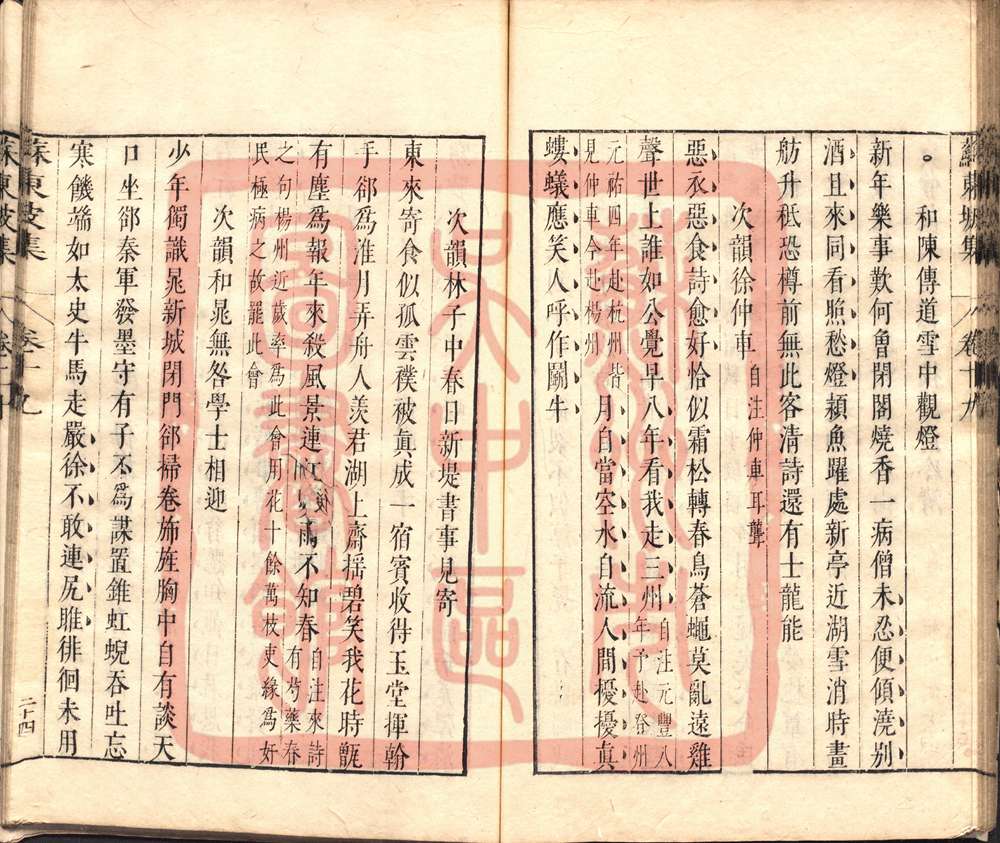 蘇東坡集 卷十九
和陳傳道雪中觀燈
新年樂事歎何曾閉閣燒香一病僧未忍便傾澆别
酒且來同看照愁燈潁魚躍處新亭近湖雪消時畫
舫升秪恐樽前無此客清詩還有士龍能
次韻徐仲車 自注仲車耳聾
惡衣惡食詩愈好恰似霜松轉春鳥蒼蠅莫亂遠雞
聲世上誰如公覺早八年看我走三州 自注元豐八年予赴登州
元祐四年赴杭州皆見仲車今赴楊州 月自當空水自流人間擾擾真
螻蟻應笑人呼作鬭牛
次韻林子中春日新堤書事見寄
東來寄食似孤雲襆被真成一宿賓收得玉堂揮翰
手郤爲淮月弄舟人羡君湖上齋揺碧笑我花時甑
有塵爲報年來殺風景連江夢雨不知春 自注來詩有芍藥春
之句楊州近歲率爲此會用花十餘萬枝吏緣爲奸民極病之故罷此會
次韻和晁無咎學士相迎
少年獨識晁新城閉門郤掃卷斾旌胸中自有談天
口坐郤秦軍發墨守有子不爲謀置錐虹蜺吞吐忘
寒饑端如太史牛馬走嚴徐不敢連尻脽徘徊未用
蘇東坡集 卷十九
二十四